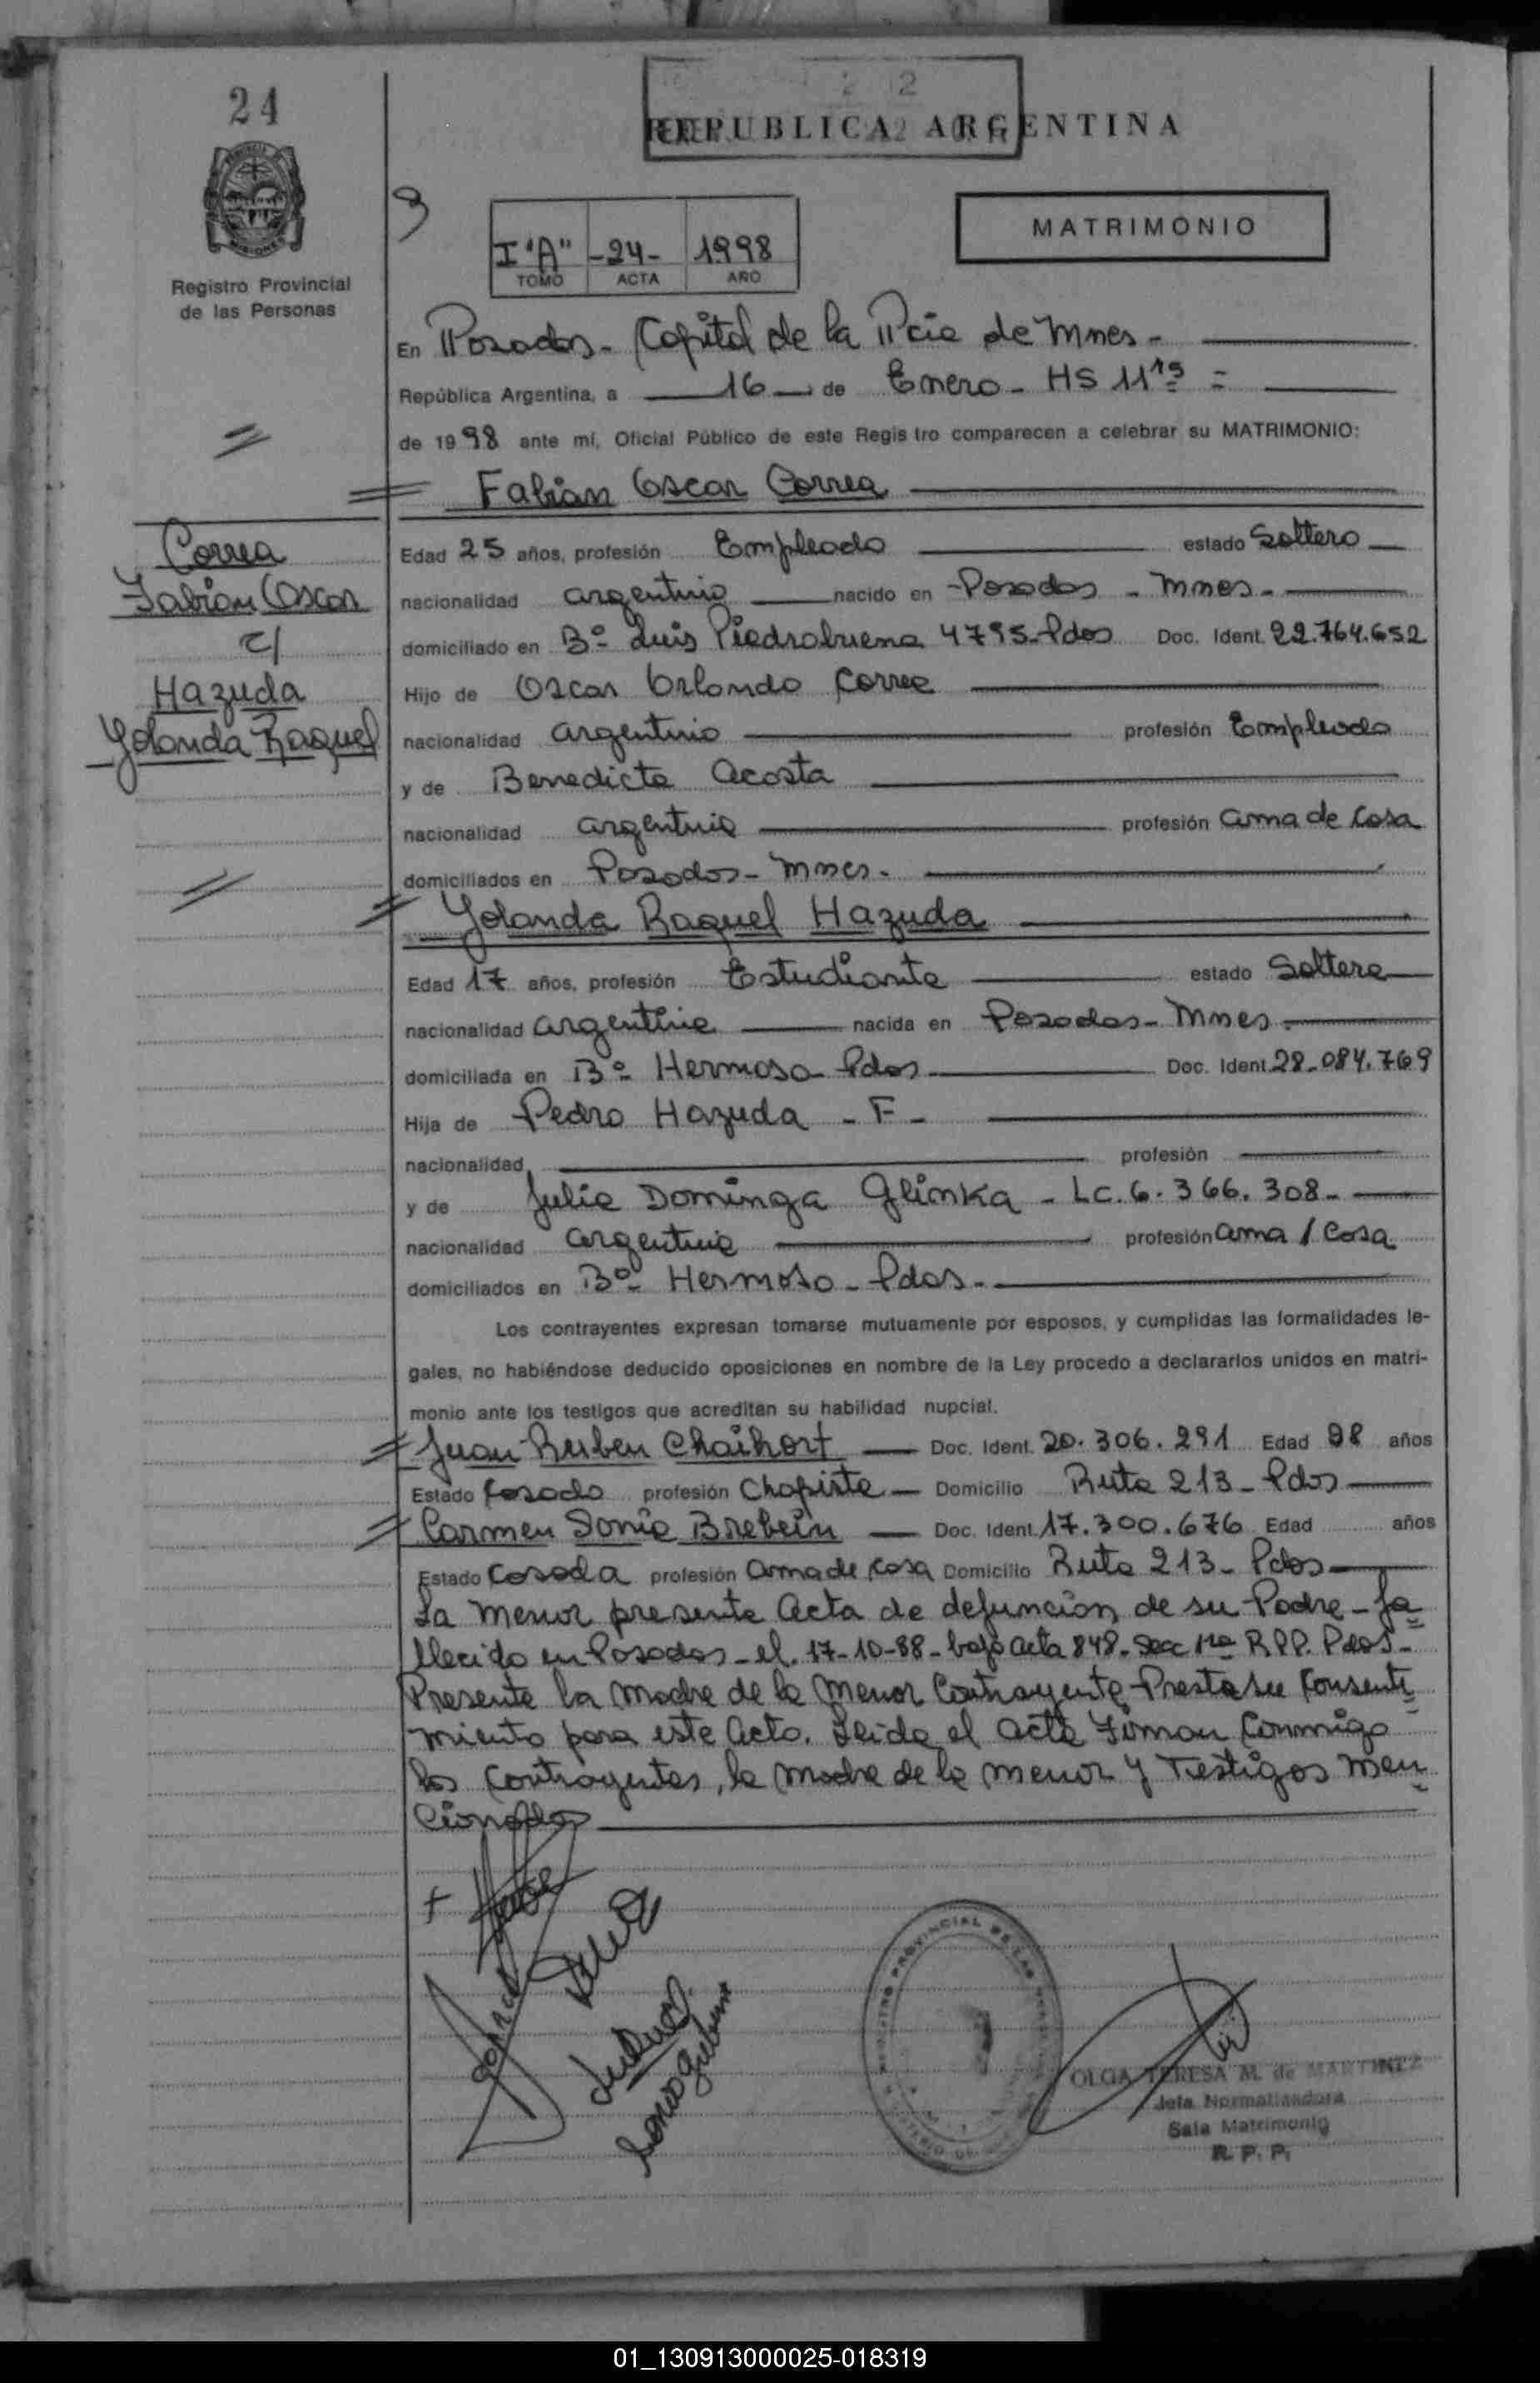 24
REPUBLICA ARGENTINA
Registro Provincial
de las Personas
MATRIMONIO
I "A" -24- 1998
TOMO ACTA AÑO
En Posadas - Capital de la Pcia de Mnes -
República Argentina, a 16 de Enero - HS 11 15 =
de 1998 ante mí, Oficial Público de este Regis tro comparecen a celebrar su MATRIMONIO:
Fabian Oscar Correa
Correa
Fabian Oscar
c/
Hazuda
Yolanda Raquel
Edad 25 años, profesión Empleado estado Soltero
nacionalidad argentino nacido en Posadas - Mnes -
domiciliado en Bº Luis Piedrabuena 4795 - Pdas Doc. Ident. 22.764.652
Hijo de Oscar Orlando Correa
nacionalidad argentino profesión Empleado
y de Benedicta Acosta
nacionalidad argentina profesión ama de Casa
domiciliados en Posadas - Mnes -
Yolanda Raquel Hazuda
Edad 17 años, profesión Estudiante estado Soltera
nacionalidad argentina nacida en Posadas - Mnes -
domiciliada en Bº Hermoso Pdas Doc. Ident. 28.084.769
Hija de Pedro Hazuda - F -
nacionalidad profesión
y de Julia Dominga Glinka - LC. 6.366.308 -
nacionalidad argentina profesión ama / Casa
domiciliados en Bº Hermoso - Pdas -
Los contrayentes expresan tomarse mutuamente por esposos, y cumplidas las formalidades le-
gales, no habiéndose deducido oposiciones en nombre de la Ley procedo a declararlos unidos en matri-
monio ante los testigos que acreditan su habilidad nupcial.
Juan Ruben Chaihort Doc. Ident. 20.306.291 Edad 28 años
Estado Casado profesión Chapista Domicilio Ruta 213 - Pdas
Carmen Sonia Brebein Doc. Ident. 17.300.676 Edad años
Estado Casada profesión Ama de Casa Domicilio Ruta 213 - Pdas
La menor presente Acta de defuncion de su Padre - fa
llecido en Posadas - el 17-10-88 - bajo acta 848 - Sec 1ra R.P.P. Pdas -
Presente la madre de la menor Contrayente Presta su Consenti
miento para este Acto. Leida el acta Firman Conmigo
los Contrayentes, la madre de la menor y Testigos men
cionados
OLGA TERESA M. de MARTINEZ
Jefa Normalizadora
Sala Matrimonio
R. P. P.
01_130913000025-018319